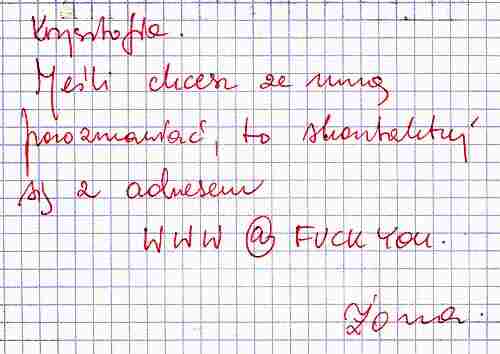 Krzysztofie.
Jeśli chcesz ze mną
porozmawiać, to skontaktuj
się z adresem
WWW @ FUCK YOU.
Żona.